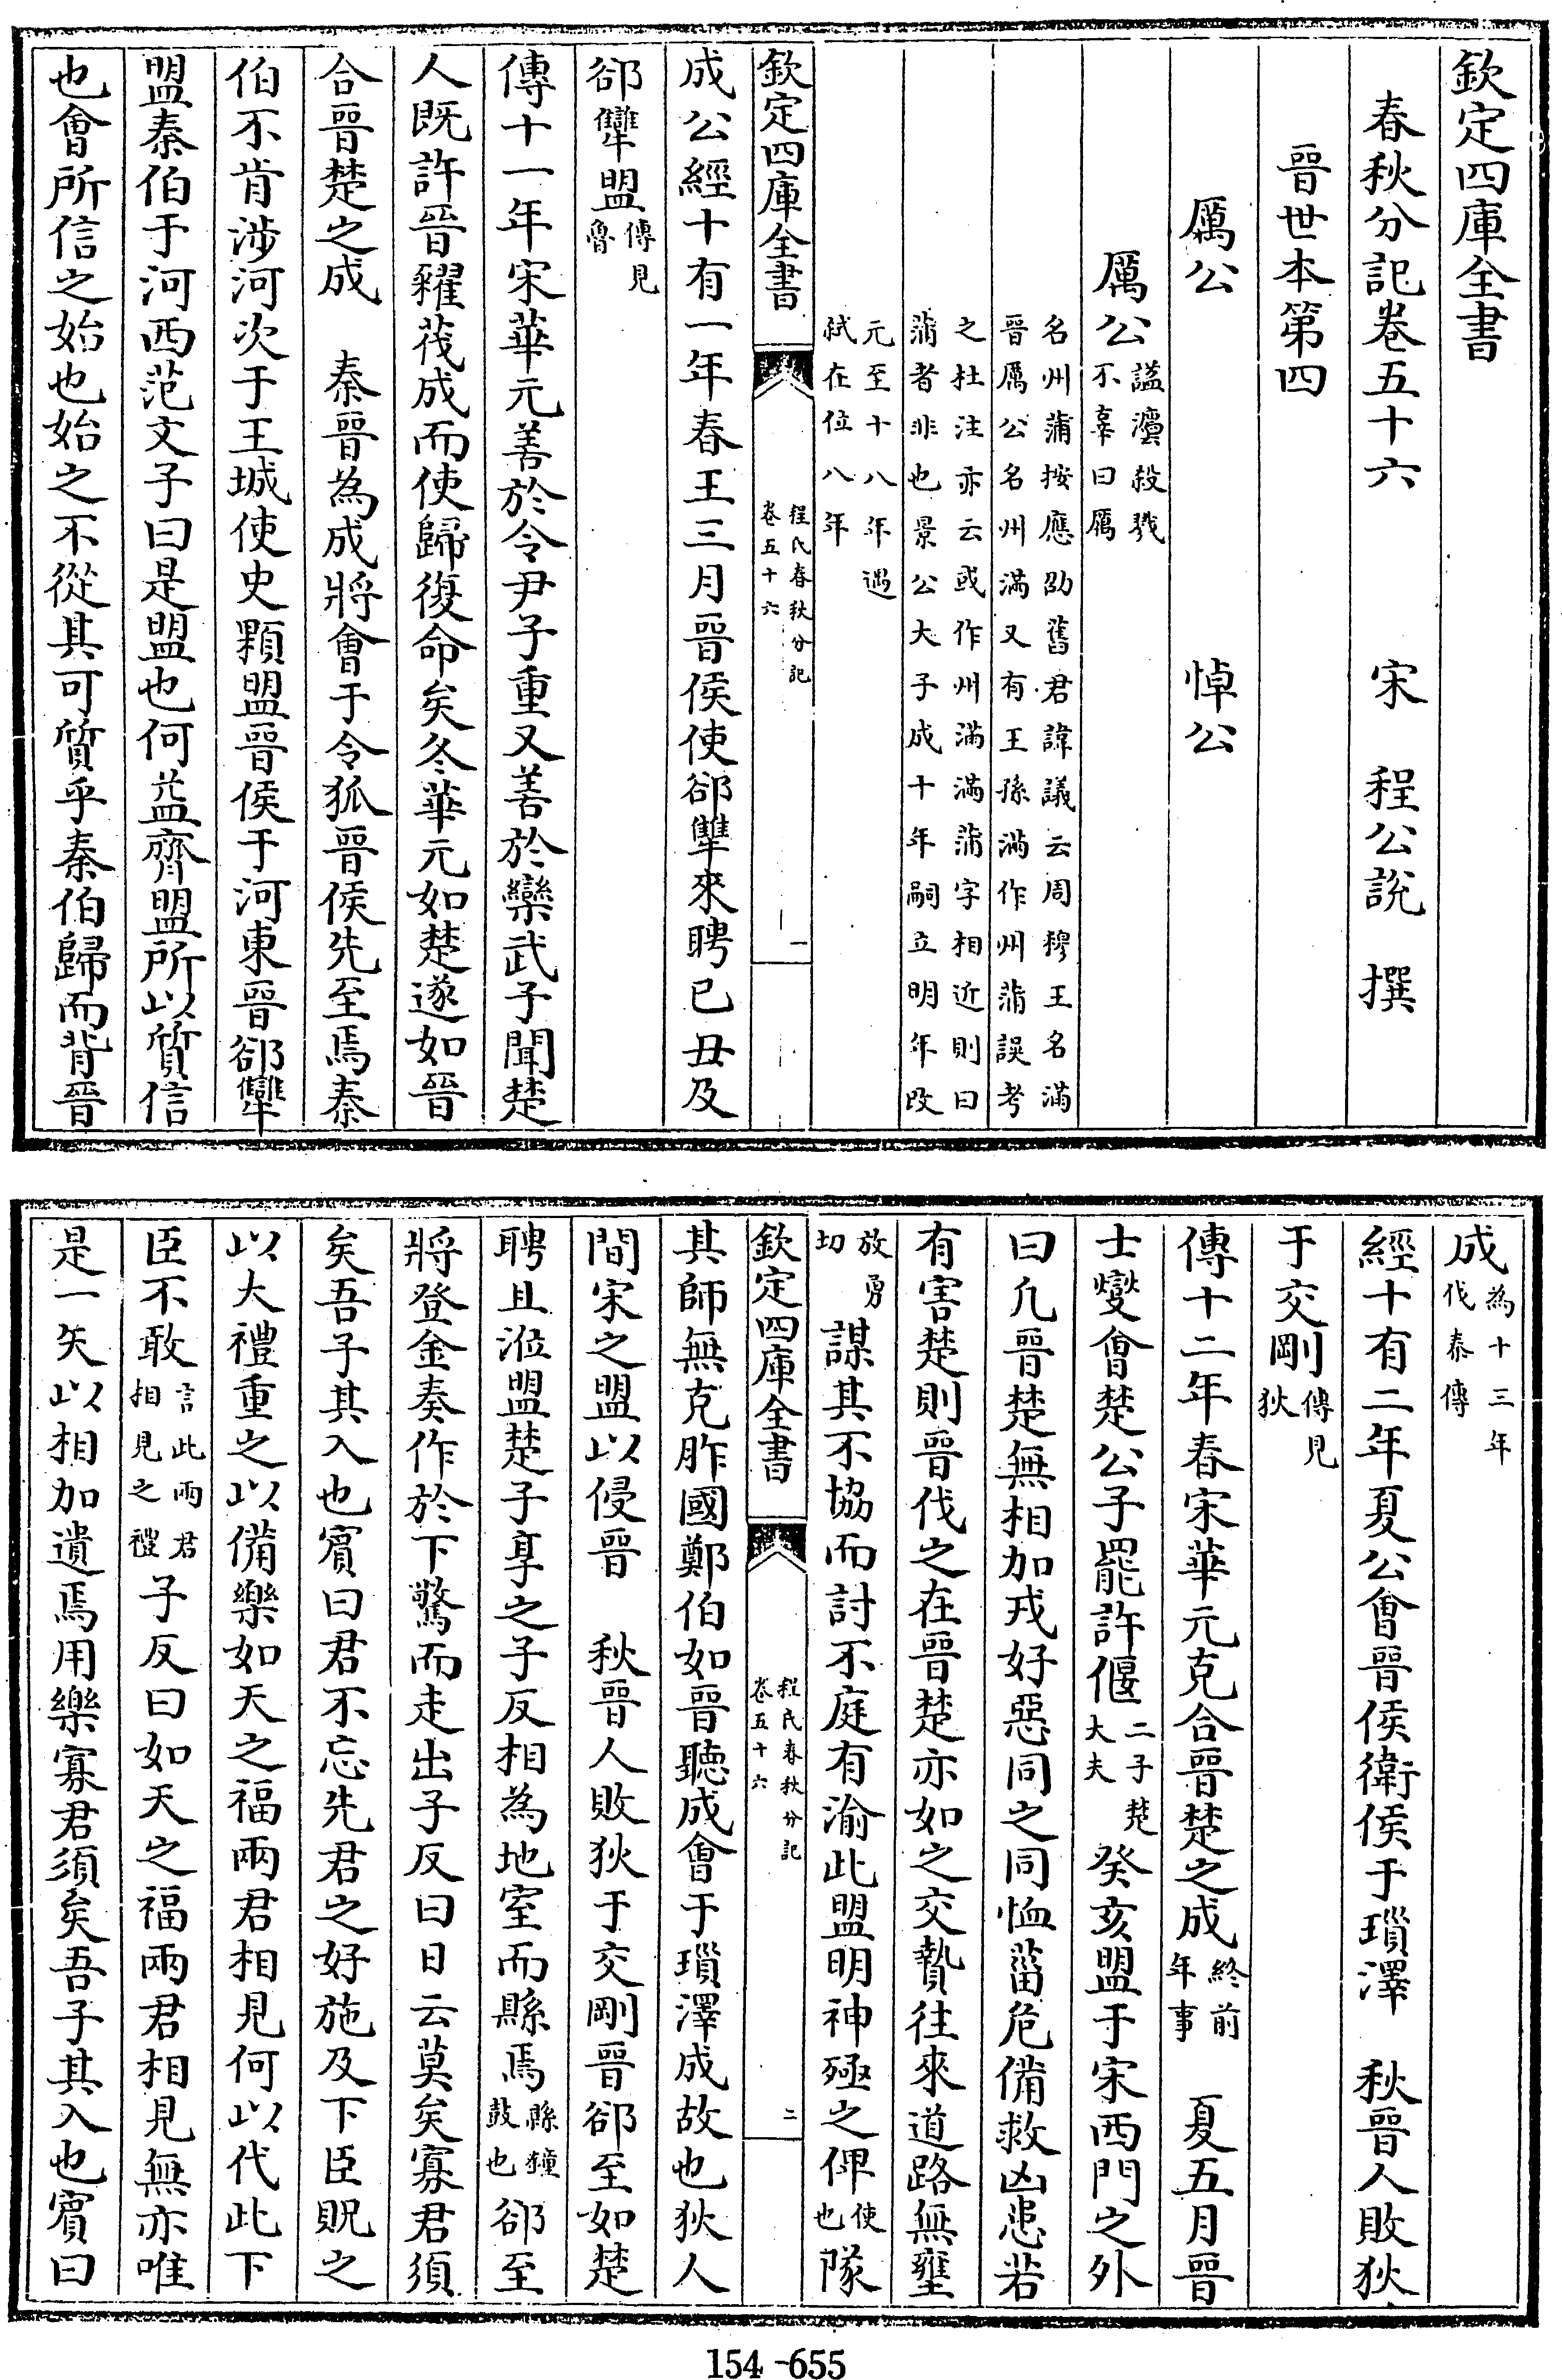 欽定四庫全書
春秋分記卷五十六　宋　程公說　撰
晉世本第四
厲公　悼公
厲公諡瀆殺戮不辜曰厲
名州蒲按應劭舊君諱議云周穆王名滿晉厲公名州滿又有王孫滿作州蒲誤考
之杜注亦云或作州滿滿蒲字相近則曰蒲者非也景公大子成十年嗣立明年改
元至十八年遇弑在位八年
欽定四庫全書　程氏春秋分記卷五十六　一
成公經十有一年春王三月晉侯使郤犨來聘已丑及
郤犨盟傳見魯
傳十一年宋華元善於令尹子重又善於欒武子聞楚
人既許晉糴茷成而使歸復命矣冬華元如楚遂如晉
合晉楚之成　秦晉為成將會于令狐晉侯先至焉秦
伯不肯涉河次于王城使史顆盟晉侯于河東晉郤犨
盟秦伯于河西范文子曰是盟也何益齊盟所以質信
也會所信之始也始之不從其可質乎秦伯歸而背晉
成為十三年伐秦傳
經十有二年夏公會晉侯衛侯于瑣澤　秋晉人敗狄
于交剛傳見狄
傳十二年春宋華元克合晉楚之成終前年事　夏五月晉
士燮會楚公子罷許偃二子楚大夫癸亥盟于宋西門之外
曰凡晉楚無相加戎好惡同之同恤菑危備救凶患若
有害楚則晉伐之在晉楚亦如之交贄往來道路無壅
放勇切謀其不協而討不庭有渝此盟明神殛之俾使也隊
欽定四庫全書　程氏春秋分記卷五十六　二
其師無克胙國鄭伯如晉聽成會于瑣澤成故也狄人
間宋之盟以侵晉　秋晉人敗狄于交剛晉郤至如楚
聘且涖盟楚子享之子反相為地室而縣焉縣鐘鼓也郤至
將登金奏作於下驚而走出子反曰日云莫矣寡君須
矣吾子其入也賓曰君不忘先君之好施及下臣貺之
以大禮重之以備樂如天之福兩君相見何以代此下
臣不敢言此兩君相見之禮子反曰如天之福兩君相見無亦唯
是一矢以相加遺焉用樂寡君須矣吾子其入也賓曰
154-655